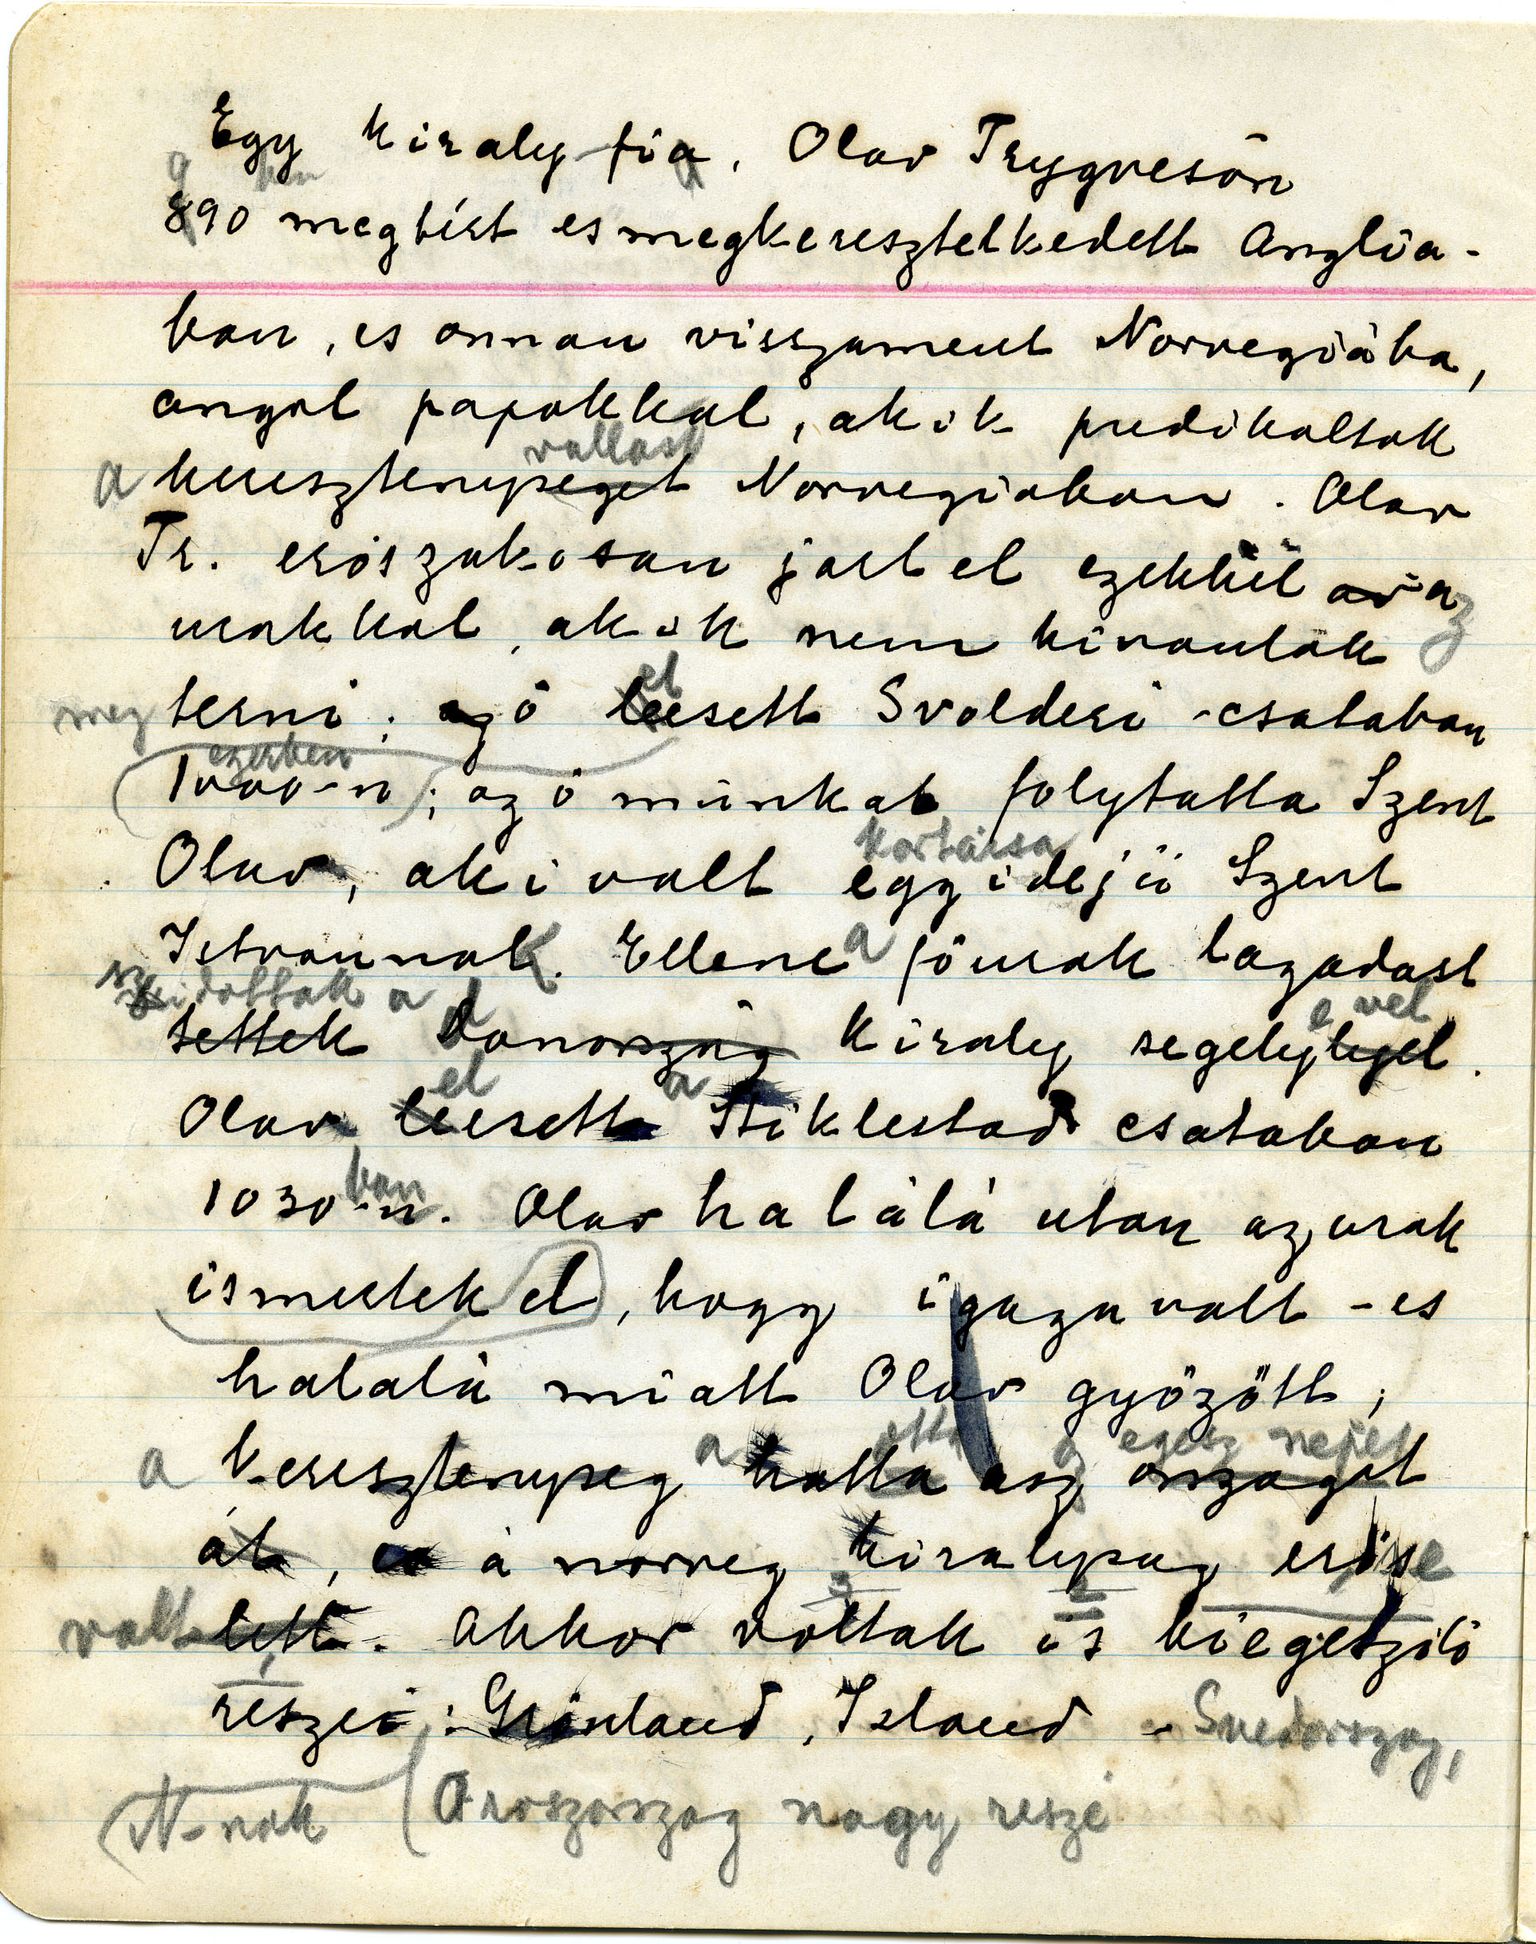 Egy kiraly fia, Olav Trygvesön
9 ben
890 megtért es megkeresztelkedett Anglia-
ban, es onnan visszament Norvegiába,
angol papokkal, akik predikaltak
vallast
a keresztenyseget Norvegiaban. Olav
Tr. eröszakosan jart el ezekkel az
urakkal, akik nem kivantak
el
meg terni; ö leesett Svolderi-csataban
ezerben
1000-n; az ö munkat folytatta Szent
kortarsa
Olav, aki valt egyidejü Szent
Istvannak. Ellene a föurak lazadast
szitottak a d e vel
tettek Danország kiraly segelylyel.
el a
Olav leesett Stiklestad csataban
ban
1030-n. Olav halálá utan az urak
ismertek el, hogy igaza valt - es
halalá miatt Olav győzött;
a otta egesz nepet
a keresztenyseg hatta asz orszagot
át, á norveg kiralysag erös
3 2
valt lett. Akkor voltak is kiegeszitö
reszei: Grönland, Island - Svedorszag,
N-nak Oroszorszag nagy resze